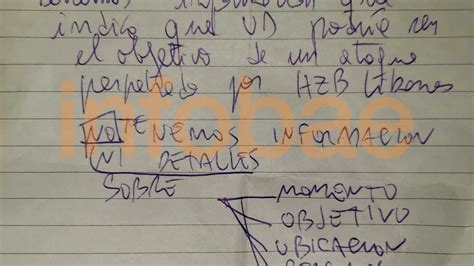 tenemos información que
indica que UD podría ser
el objetivo de un ataque
perpetrado por HZB Libanes
infobae
NO TENEMOS INFORMACION
NI DETALLES
SOBRE
MOMENTO
OBJETIVO
UBICACION